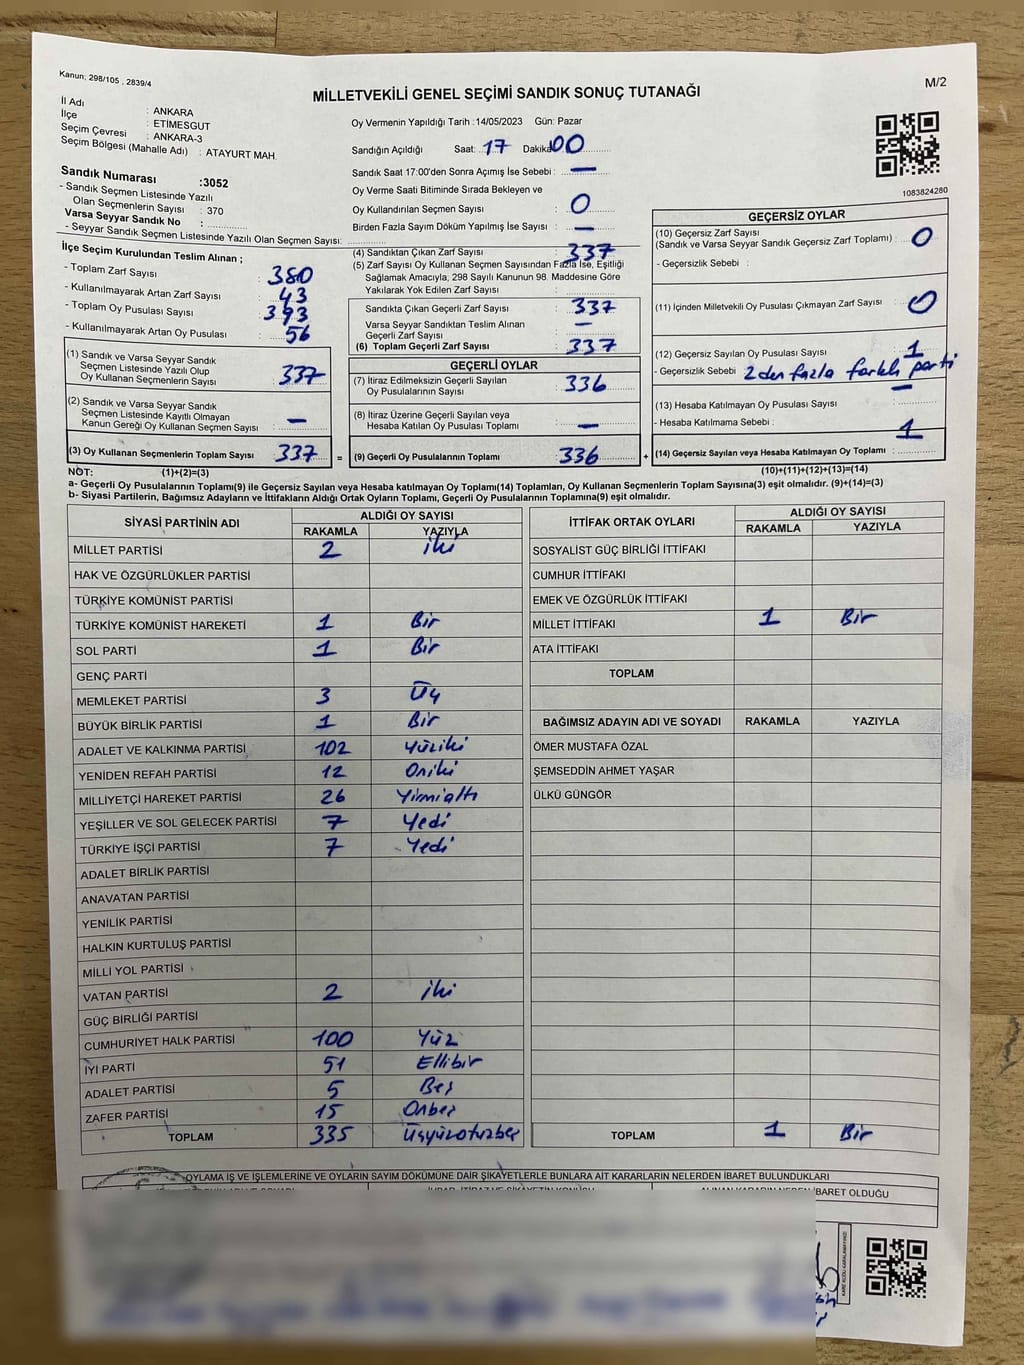 Kanun: 298/105 , 2839/4
M/2
MİLLETVEKİLİ GENEL SEÇİMİ SANDIK SONUÇ TUTANAĞI
İl Adı : ANKARA
İlçe : ETİMESGUT
Seçim Çevresi : ANKARA-3
Seçim Bölgesi (Mahalle Adı) : ATAYURT MAH.
Sandık Numarası :3052
- Sandık Seçmen Listesinde Yazılı
Olan Seçmenlerin Sayısı : 370
Varsa Seyyar Sandık No :
- Seyyar Sandık Seçmen Listesinde Yazılı Olan Seçmen Sayısı:
Oy Vermenin Yapıldığı Tarih :14/05/2023 Gün: Pazar
Sandığın Açıldığı Saat: 17 Dakika 00
Sandık Saat 17:00'den Sonra Açımış İse Sebebi : —
Oy Verme Saati Bitiminde Sırada Bekleyen ve
Oy Kullandırılan Seçmen Sayısı : 0
Birden Fazla Sayım Döküm Yapılmış İse Sayısı : —
1083824280
İlçe Seçim Kurulundan Teslim Alınan ;
- Toplam Zarf Sayısı : 380
- Kullanılmayarak Artan Zarf Sayısı : 43
- Toplam Oy Pusulası Sayısı : 393
- Kullanılmayarak Artan Oy Pusulası : 56
(1) Sandık ve Varsa Seyyar Sandık
Seçmen Listesinde Yazılı Olup
Oy Kullanan Seçmenlerin Sayısı : 337
(2) Sandık ve Varsa Seyyar Sandık
Seçmen Listesinde Kayıtlı Olmayan
Kanun Gereği Oy Kullanan Seçmen Sayısı : —
(3) Oy Kullanan Seçmenlerin Toplam Sayısı : 337
(4) Sandıktan Çıkan Zarf Sayısı : 337
(5) Zarf Sayısı Oy Kullanan Seçmen Sayısından Fazla İse, Eşitliği
Sağlamak Amacıyla, 298 Sayılı Kanunun 98. Maddesine Göre
Yakılarak Yok Edilen Zarf Sayısı :
Sandıkta Çıkan Geçerli Zarf Sayısı : 337
Varsa Seyyar Sandıktan Teslim Alınan
Geçerli Zarf Sayısı : —
(6) Toplam Geçerli Zarf Sayısı : 337
GEÇERLİ OYLAR
(7) İtiraz Edilmeksizin Geçerli Sayılan
Oy Pusulalarının Sayısı : 336
(8) İtiraz Üzerine Geçerli Sayılan veya
Hesaba Katılan Oy Pusulası Toplamı : —
= (9) Geçerli Oy Pusulalarının Toplamı : 336 +
GEÇERSİZ OYLAR
(10) Geçersiz Zarf Sayısı
(Sandık ve Varsa Seyyar Sandık Geçersiz Zarf Toplamı) : 0
- Geçersizlik Sebebi :
(11) İçinden Milletvekili Oy Pusulası Çıkmayan Zarf Sayısı : 0
(12) Geçersiz Sayılan Oy Pusulası Sayısı : 1
- Geçersizlik Sebebi : 2 den fazla farklı parti
(13) Hesaba Katılmayan Oy Pusulası Sayısı : —
- Hesaba Katılmama Sebebi :
(14) Geçersiz Sayılan veya Hesaba Katılmayan Oy Toplamı : 1
NOT: (1)+(2)=(3)
(10)+(11)+(12)+(13)=(14)
a- Geçerli Oy Pusulalarının Toplamı(9) ile Geçersiz Sayılan veya Hesaba katılmayan Oy Toplamı(14) Toplamları, Oy Kullanan Seçmenlerin Toplam Sayısına(3) eşit olmalıdır. (9)+(14)=(3)
b- Siyasi Partilerin, Bağımsız Adayların ve İttifakların Aldığı Ortak Oyların Toplamı, Geçerli Oy Pusulalarının Toplamına(9) eşit olmalıdır.
SİYASİ PARTİNİN ADI ALDIĞI OY SAYISI
RAKAMLA YAZIYLA
MİLLET PARTİSİ 2 iki
HAK VE ÖZGÜRLÜKLER PARTİSİ
TÜRKİYE KOMÜNİST PARTİSİ
TÜRKİYE KOMÜNİST HAREKETİ 1 Bir
SOL PARTİ 1 Bir
GENÇ PARTİ
MEMLEKET PARTİSİ 3 Üç
BÜYÜK BİRLİK PARTİSİ 1 Bir
ADALET VE KALKINMA PARTİSİ 102 yüziki
YENİDEN REFAH PARTİSİ 12 Oniki
MİLLİYETÇİ HAREKET PARTİSİ 26 Yirmialtı
YEŞİLLER VE SOL GELECEK PARTİSİ 7 Yedi
TÜRKİYE İŞÇİ PARTİSİ 7 Yedi
ADALET BİRLİK PARTİSİ
ANAVATAN PARTİSİ
YENİLİK PARTİSİ
HALKIN KURTULUŞ PARTİSİ
MİLLİ YOL PARTİSİ
VATAN PARTİSİ 2 iki
GÜÇ BİRLİĞİ PARTİSİ
CUMHURİYET HALK PARTİSİ 100 Yüz
İYİ PARTİ 51 Ellibir
ADALET PARTİSİ 5 Beş
ZAFER PARTİSİ 15 Onbeş
TOPLAM 335 Üçyüzotuzbeş
İTTİFAK ORTAK OYLARI ALDIĞI OY SAYISI
RAKAMLA YAZIYLA
SOSYALİST GÜÇ BİRLİĞİ İTTİFAKI
CUMHUR İTTİFAKI
EMEK VE ÖZGÜRLÜK İTTİFAKI
MİLLET İTTİFAKI 1 Bir
ATA İTTİFAKI
TOPLAM
BAĞIMSIZ ADAYIN ADI VE SOYADI RAKAMLA YAZIYLA
ÖMER MUSTAFA ÖZAL
ŞEMSEDDİN AHMET YAŞAR
ÜLKÜ GÜNGÖR
TOPLAM 1 Bir
OYLAMA İŞ VE İŞLEMLERİNE VE OYLARIN SAYIM DÖKÜMÜNE DAİR ŞİKAYETLERLE BUNLARA AİT KARARLARIN NELERDEN İBARET BULUNDUKLARI
İBARET OLDUĞU